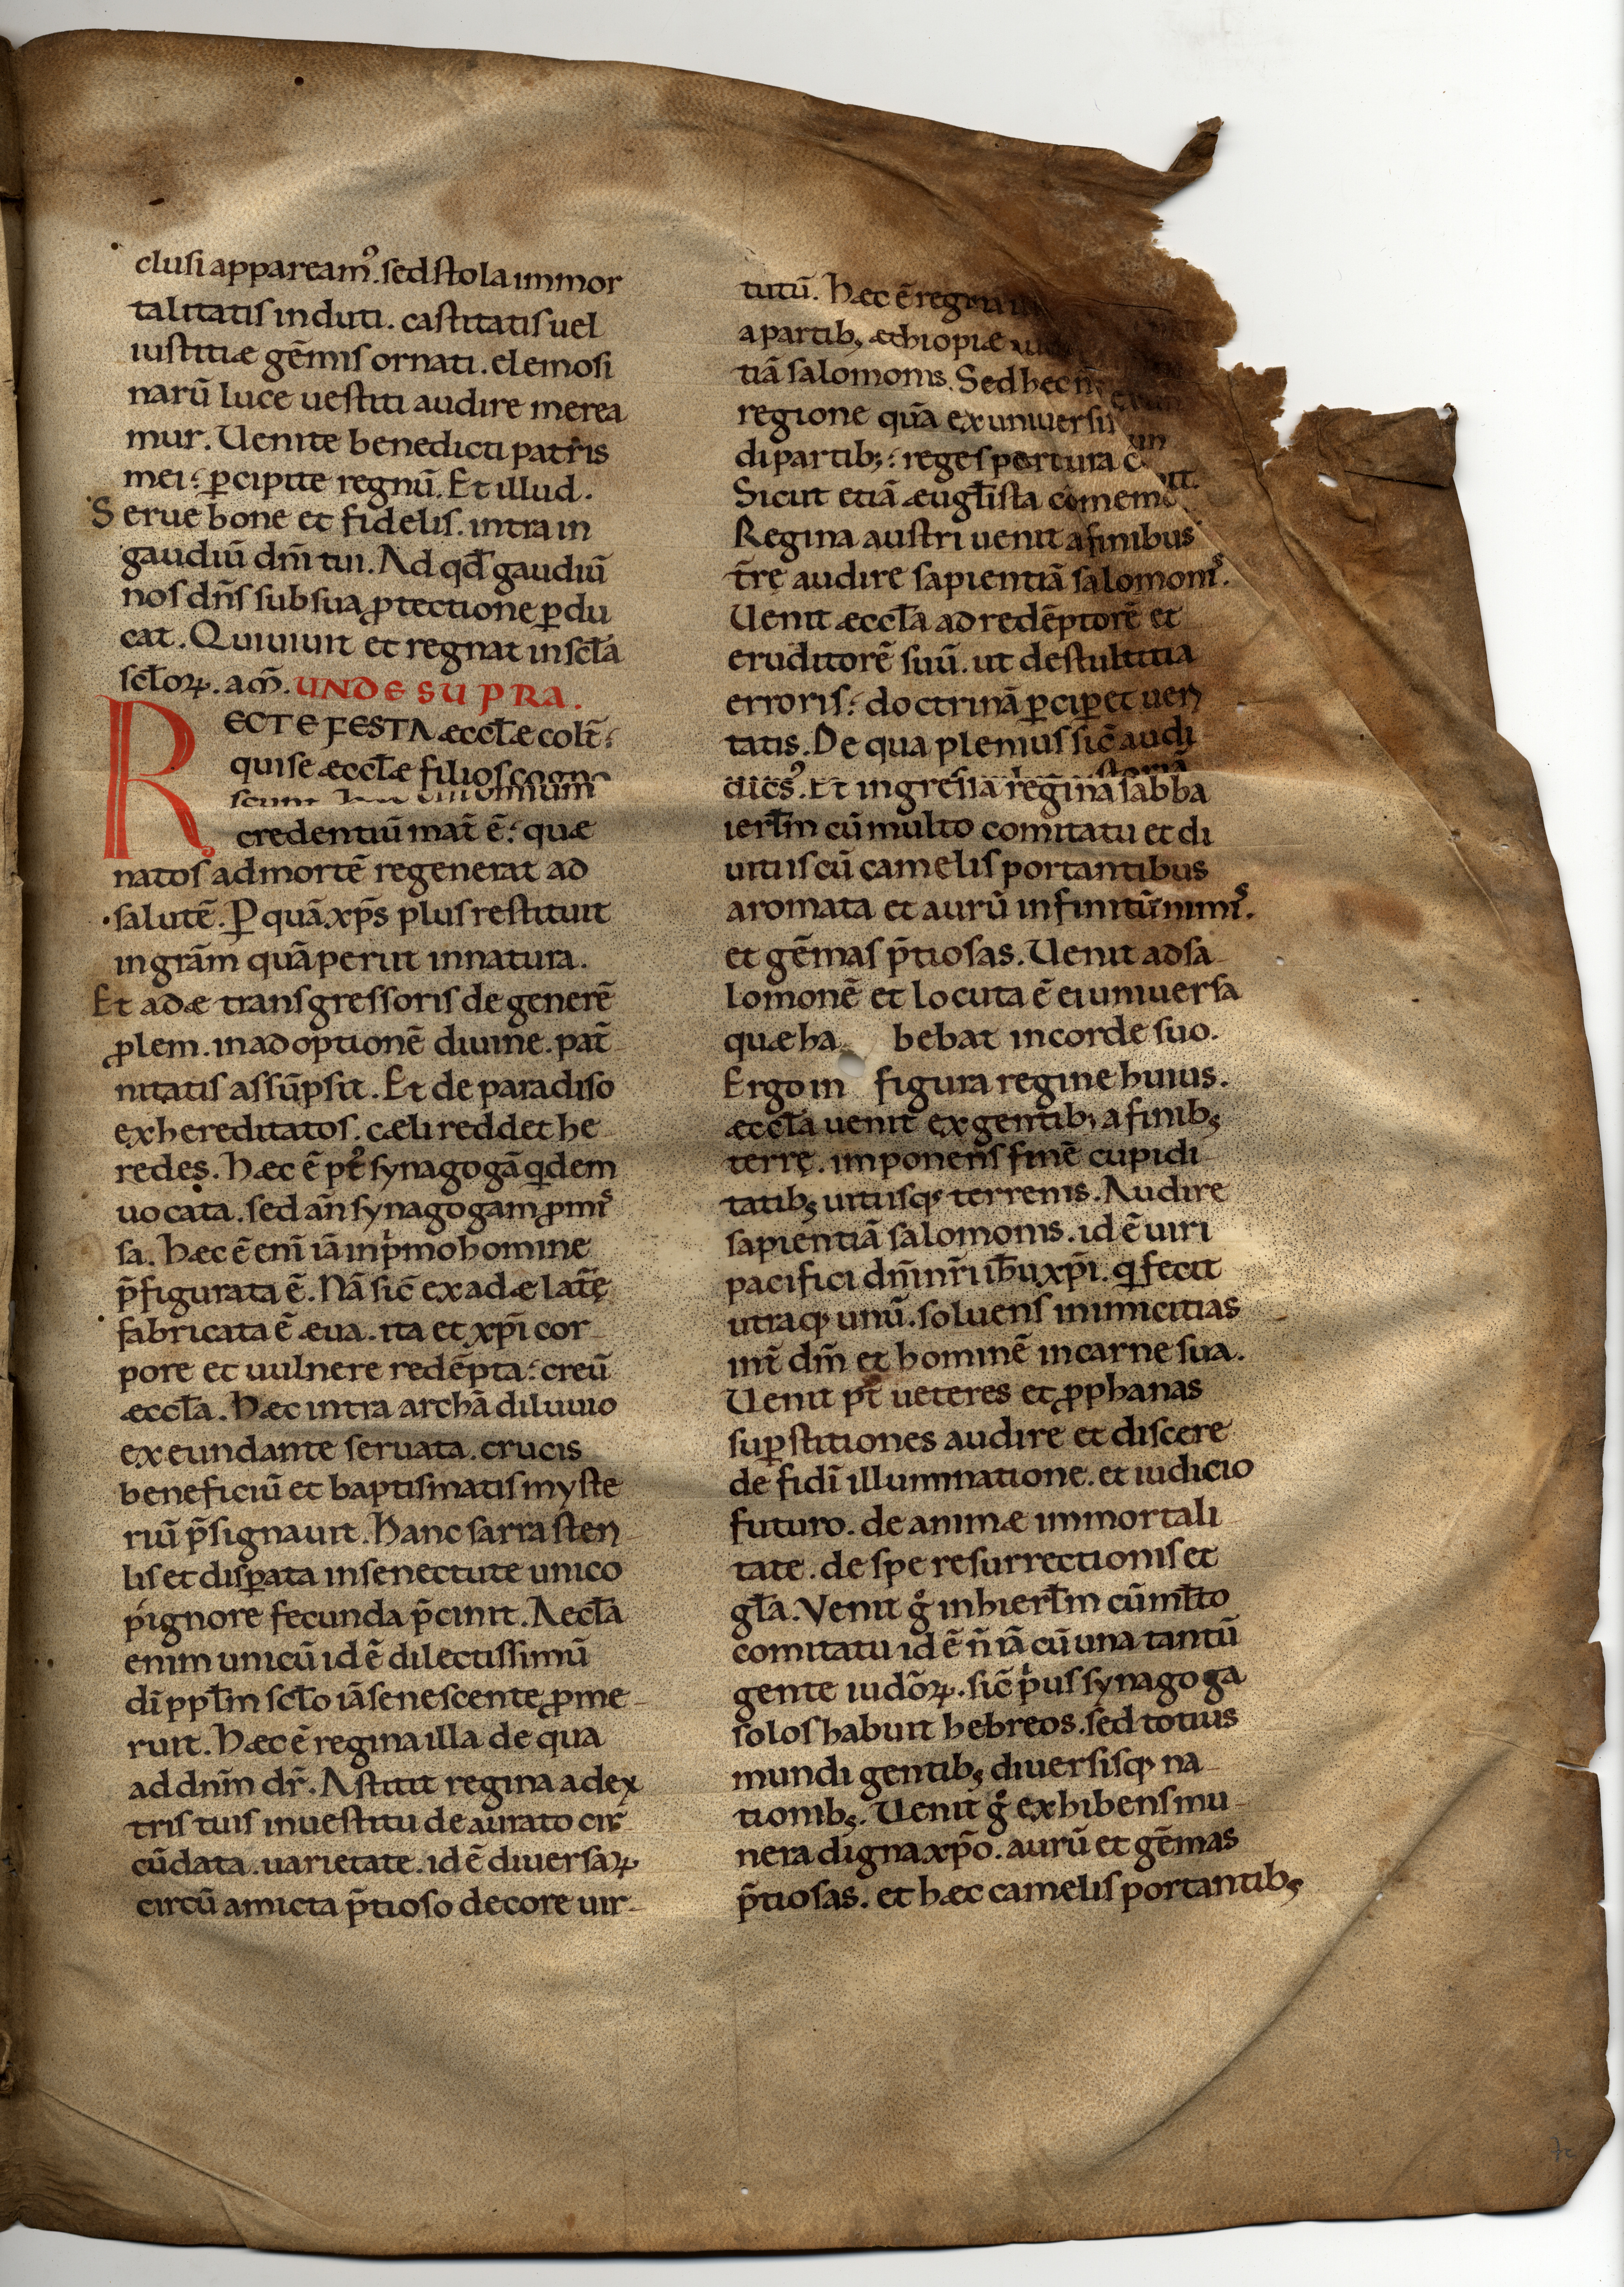 clusi appaream᷒. sed stola immor
talitatis induti. castitatis uel
iustitiæ gēmis ornati. elemosi
narū luce uestiti audire merea
mur. Uenite benedicti patris
mei: ꝑcipite regnū. Et illud.
Serue bone et fidelis. intra in
gaudiū dn̄i tui. Ad qđ gaudiū
nos dn̄s sub sua ꝓtectione ꝑdu
cat. Qui uiuit et regnat in scła
scłoꝝ. am̄. UNDE SUPRA.
RECTE FESTA æccłæ colit̄:
qui se æccłæ filios cogno
omnium
credentiū mat̄ ē: quæ
natos ad mortē regenerat ad
salutē. Ꝑ quā xp̄s plus restituit
in grām quā periit in natura.
Et adæ transgressoris de generē
ꝓlem. in adoptionē diuine. pat̄
nitatis assūpsit. Et de paradiso
exhereditatos. cæli reddet he
redes. Hæc ē p᷒t synagogā q̄dem
uocata. sed an̄ synagogam ꝓmis
sa. Hæc ē eni̅ iā in pⁱmo homine
p̄figurata ē. Nā sic̄ ex adæ lat̄ę
fabricata ē æua. ita et xp̄i cor
pore et uulnere redēpta: creū
æccła. Hæc intra archā diluuio
exeundante seruata. crucis
beneficiū et baptismatis myste
riū p̄signauit. Hanc sarra steri
lis et disꝑata in senectute unico
pignore fecunda p̄cinit. Aecła
enim unicū id ē dilectissimū
di̅ ppłm scło iā senescente ꝓme
ruit. Hæc ē regina illa de qua
ad dnm̄ dr̄. Astitit regina a dex
tris tuis in uestitu deaurato cir̄
cūdata. uarietate. id ē diuersaꝝ
circū amicta p̄tioso decore uir
tutū. Hæc ē regina
a partib; æthiopiæ
tiā salomonis. Sed hec n̄
regione quā ex uniuersi
di partib;: reges
Sicut etiā æugłista cōmemo
Regina austri uenit a finibus
tr̄e audire sapientiā salomonis.
Uenit æccła ad redēptorē et
eruditorē suū. ut de stultitia
erroris: doctrinā ꝑciꝑet ueri
tatis. De qua plenius sic̄ audi
dic̄s. Et ingressa regina sabba
ierłm cū multo comitatu et di
uitiis cū camelis portantibus
aromata et aurū infinitū nimis.
et gēmas p̄tiosas. Uenit ad sa
lomonē et locuta ē ei uniuersa
quæ ha bebat in corde suo.
Ergo in figura regine huius.
æccła uenit ex gentib; a finib;
terrę. imponens finē cupidi
tatib; uitiisq; terrenis. Audire
sapientiā salomonis. id ē uiri
pacifici dn̄i nr̄i ihu̅ xp̄i. q̄ fecit
utraq; unū. soluens inimicitias
int̄ dm̄ et hominē in carne sua.
Uenit p᷒t ueteres et ꝓphanas
suꝑstitiones audire et discere
de fidi̅ illuminatione. et iudicio
futuro. de animæ immortali
tate. de spe resurrectionis et
gła. Venit g̊ in hierłm cū młto
comitatu id ē n̄ iā cū una tantū
gente iudōꝝ. sic̄ pⁱus synagoga
solos habuit hebreos. sed totius
mundi gentib; diuersisq; na
tionib;. Uenit g̊ exhibens mu
nera digna xp̄o. aurū et gēmas
p̄tiosas. et hæc camelis portantib;